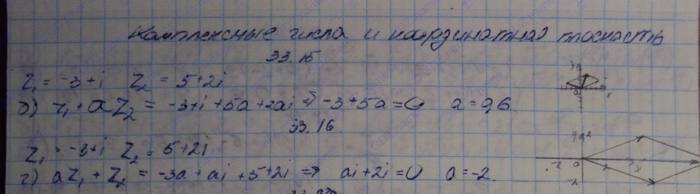 Комплексные числа и координатная плоскость
33.15
z₁ = -3+i z₂ = 5+2i
б) z₁ + a z₂ = -3+i + 5a + 2ai ⇒ -3+5a = 0 a = 0,6
33.16
z₁ = -3+i z₂ = 5+2i
г) a z₁ + z₂ = -3a + ai + 5+2i ⇒ ai + 2i = 0 a = -2